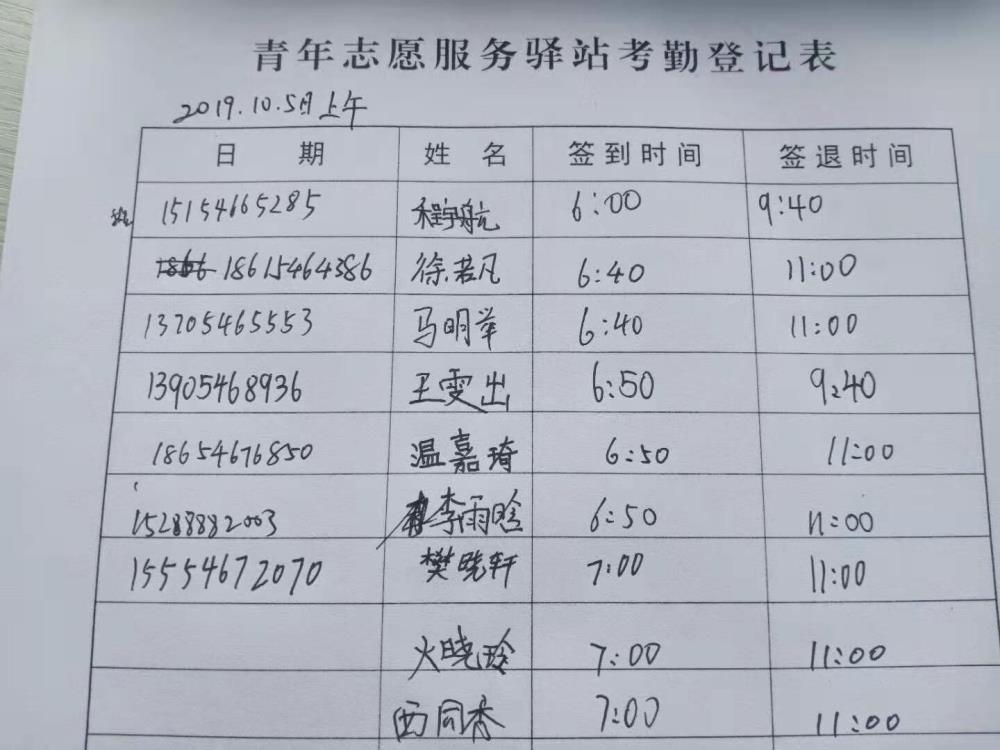 青年志愿服务驿站考勤登记表
2019.10.5日上午
日期 姓名 签到时间 签退时间
15154665285 程宇航 6:00 9:40
18615464386 徐若凡 6:40 11:00
13705465553 马明举 6:40 11:00
13905468936 王雯出 6:50 9:40
18654676850 温嘉琦 6:50 11:00
15288882003 李雨晗 6:50 11:00
15554672070 樊晓轩 7:00 11:00
火晓玲 7:00 11:00
西同香 7:00 11:00